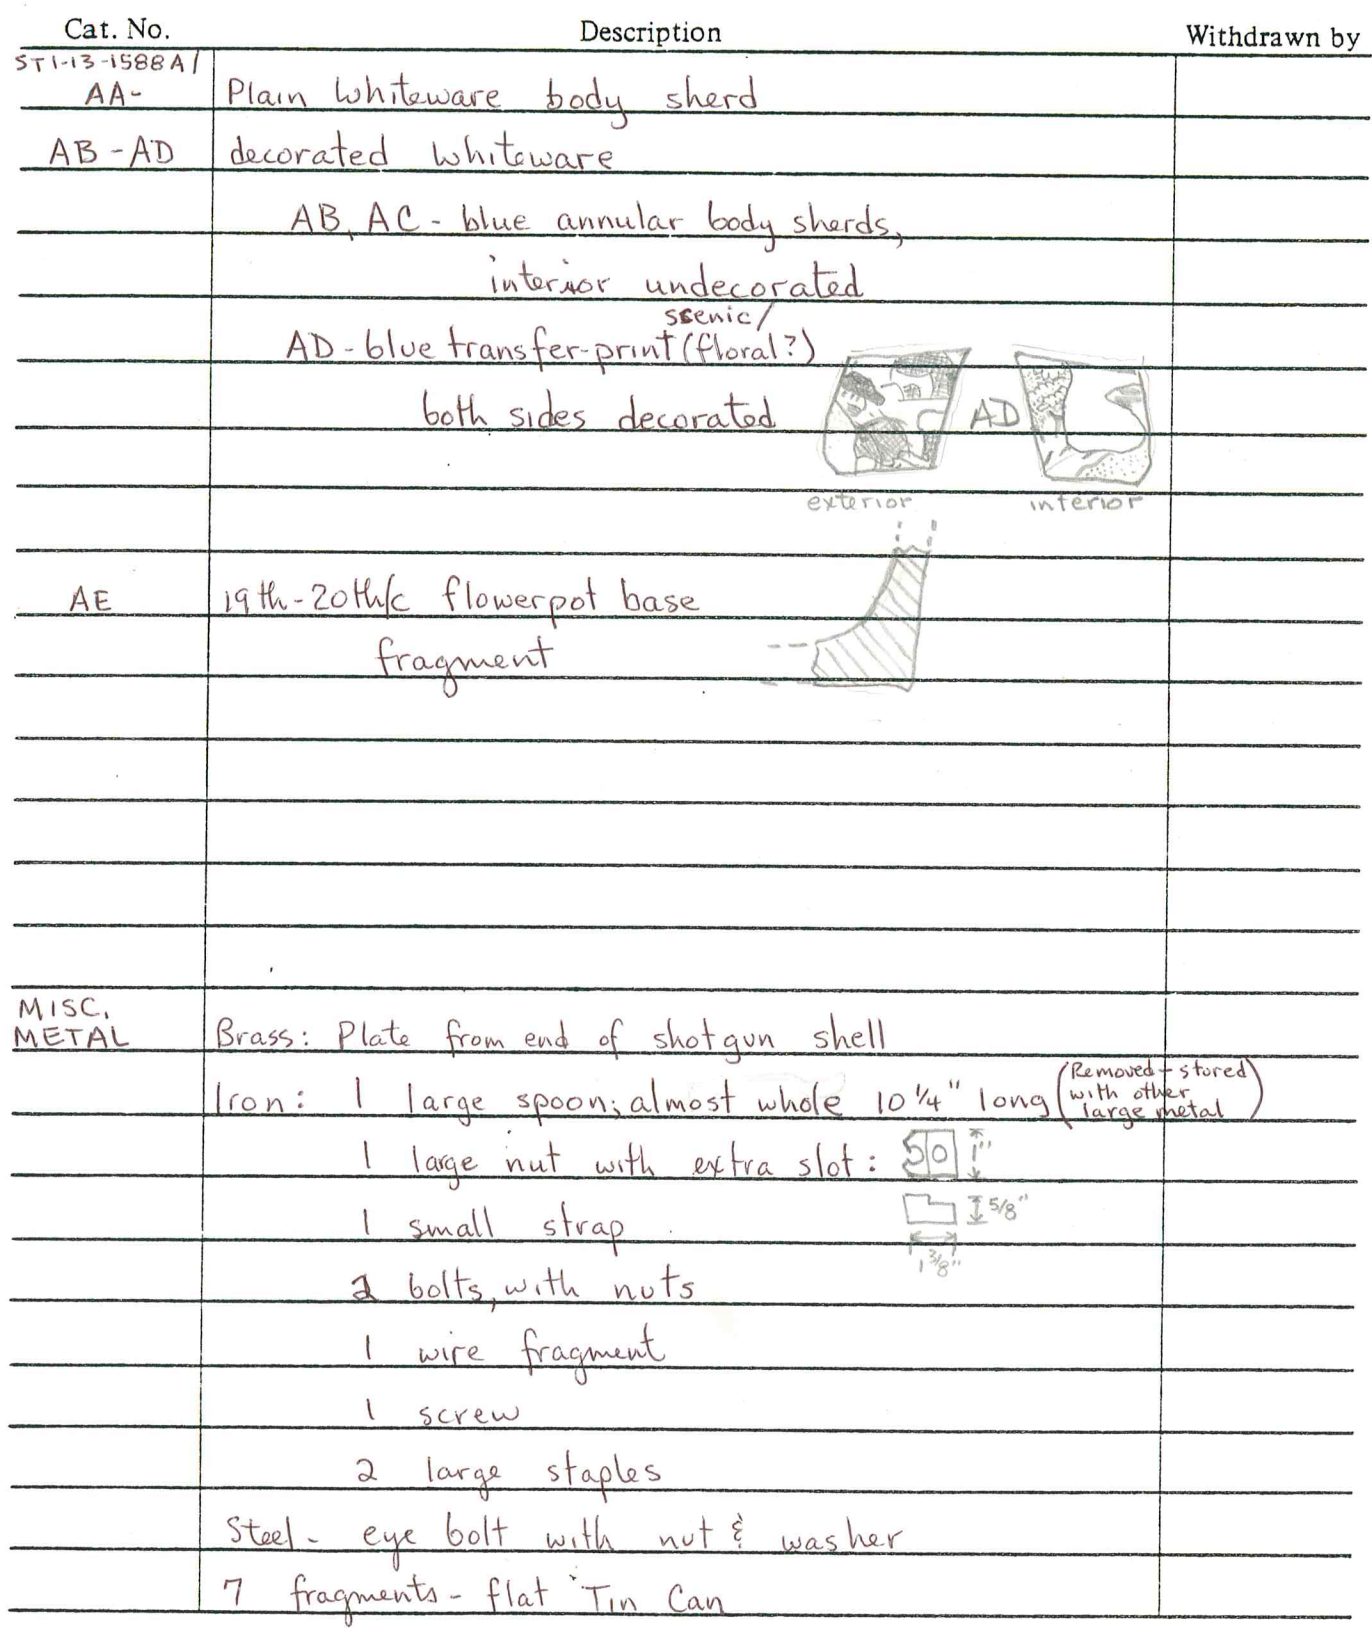 Cat. No. Description Withdrawn by
ST1-13-1588A/
AA- Plain Whiteware body sherd
AB-AD decorated whiteware
AB, AC - blue annular body sherds,
interior undecorated
scenic/
AD - blue transfer-print (floral?)
both sides decorated AD
exterior interior
AE 19th-20th/c flowerpot base
fragment
MISC.
METAL Brass: Plate from end of shotgun shell
Iron: 1 large spoon; almost whole 10 1/4" long (Removed + stored
with other
large metal)
1 large nut with extra slot: 1"
1 small strap 5/8"
1 3/8"
2 bolts, with nuts
1 wire fragment
1 screw
2 large staples
Steel - eye bolt with nut & washer
7 fragments - flat Tin Can